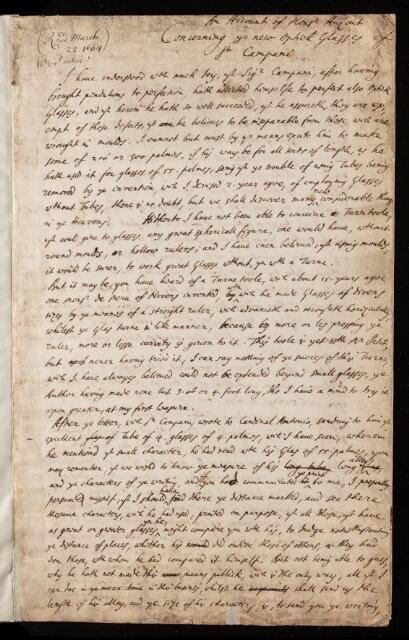 An Account of Monsr Auzout
Concerning ye new Optick Glasses of
Sr Campani.
(Read March
22 1664)
I have understood wth much joy, yt Sigr Campani, after having
brought pendulums to perfection hath addicted himselfe to perfect also Optick
Glasses, and yt herein he hath so well succeeded, yt he assureth, they are ex-
empt of those defects, yt he believes to be inseparable from those, wch are
wrought in moulds. I cannot but must by yr means exhort him to make
some of 200 or 300 palmes, if his way be for all sorts of length, as he
hath used it for glasses of 55. palmes, seing yt ye trouble of using Tubes being
removed by ye invention, wch I devised 2. year agoe, of employing Glasses
without Tubes, there is no doubt, but we shall discover many considerable things
in ye heavens. Hitherto I have not been able to conceive a Turne toole,
yt could give to glasses, any great sphericall figure, one would have, without
round moulds, or hollow rulers; and I have even believed, yt using moulds
it would be surer, to work great Glasses without, yn wth a Turne.
But it may be, you have heard of a Turne toole, wch about 15. years agoe
one monsr de of Nevers invented, by wch he made Glasses of divers
sizes by ye means of a straight ruler, wch advanceth and recoyleth horizontally
whilest ye Glas turns in like manner, because by more or less pressing ye
ruler, more or lesse curvity is given to it. This toole is yet wth
but never having tried it, I can say nothing of ye success of this Turne
wch I have always believed could not be extended beyond small glasses, ye
Author having made none but 3. or 4. foot long, tho I have a mind to try it
upon greater, at my first leasure.
After ye letter, wch Sr Campani, wrote to Cardinal Antonio, sending to him ye
excellent Tube of 4. glasses of 4. palmes, wch I have seen; wherein
he mentioned ye small character, he had read wth his Glas of 55. palmes, you
may remember, yt we wished to know ye measure of his long alley,
and ye characters of ye writing, and you had communicated ye print to me, I presently
perswaded myself, yt I should find there ye distance marked, and see there
the same characters, wch he had used, printed on purpose, yt all those, yt have
as great or greater glasses, might compare ym wth his, to Judge notwithstanding
ye distance of places, whether his did outdoe those of others, as they had
don those, wth whom he had compared it himself. But not being able to guess,
why he hath not made this means publick, wch is the only way, all yt I
can doe in ye mean time is this business, whilst he shall send us the
length of his alley, and ye size of his characters, is, to send you ye writing,